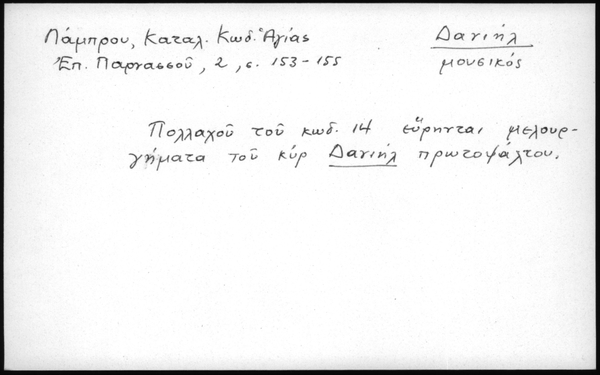 Λάμπρου, Καταλ. Κωδ. Ἁγίας
Ἐπ. Παρνασσοῦ, 2, σ. 153-155
Δανιήλ
μουσικός
Πολλαχοῦ τοῦ κωδ. 14 εὕρηνται μελουρ-
γήματα τοῦ κύρ Δανιήλ πρωτοψάλτου.